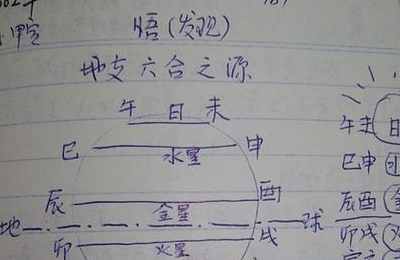 悟(发现)
地支六合之源
午 日 未
巳 水星 申
辰 金星 酉
地 球
卯 火星 戌
午未 日
巳申 水
辰酉 金
卯戌 火